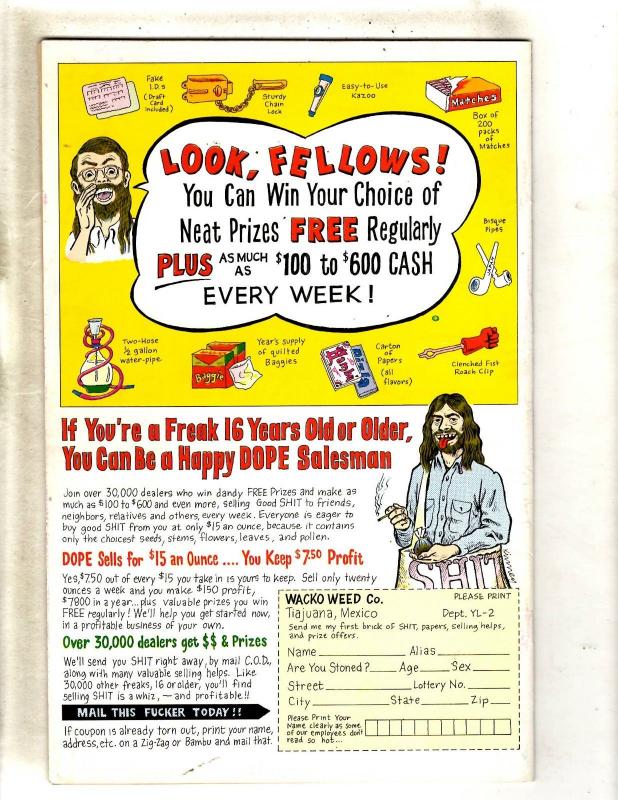 Fake
I.D.s
(Draft
Card
Included)
Sturdy
Chain
Lock
Easy-to-Use
Kazoo
Matches
Box of
200
packs
of
Matches
LOOK, FELLOWS!
You Can Win Your Choice of
Neat Prizes FREE Regularly
PLUS AS MUCH AS $100 to $600 CASH
EVERY WEEK!
Bisque
Pipes
Two-Hose
½ gallon
water-pipe
Baggie
Year's supply
of quilted
Baggies
Carton
of
Papers
(all
flavors)
Clenched Fist
Roach Clip
If You're a Freak 16 Years Old or Older,
You Can Be a Happy DOPE Salesman
Join over 30,000 dealers who win dandy FREE Prizes and make as
much as $100 to $600 and even more, selling Good SHIT to friends,
neighbors, relatives and others, every week. Everyone is eager to
buy good SHIT from you at only $15 an ounce, because it contains
only the choicest seeds, stems, flowers, leaves, and pollen.
SHIT
DOPE Sells for $15 an Ounce .... You Keep $7.50 Profit
Yes, $7.50 out of every $15 you take in is yours to keep. Sell only twenty
ounces a week and you make $150 profit,
$7800 in a year...plus valuable prizes you win
FREE regularly! We'll help you get started now,
in a profitable business of your own.
Over 30,000 dealers get $$ & Prizes
We'll send you SHIT right away, by mail C.O.D.,
along with many valuable selling helps. Like
30,000 other freaks, 16 or older, you'll find
selling SHIT is a whiz, — and profitable!!
MAIL THIS FUCKER TODAY!!
If coupon is already torn out, print your name,
address, etc. on a Zig-Zag or Bambu and mail that.
WACKO WEED Co. PLEASE PRINT
Tiajuana, Mexico Dept. YL-2
Send me my first brick of SHIT, papers, selling helps,
and prize offers.
Name Alias
Are You Stoned? Age Sex
Street Lottery No.
City State Zip
Please Print Your
Name clearly as some
of our employees don't
read so hot...